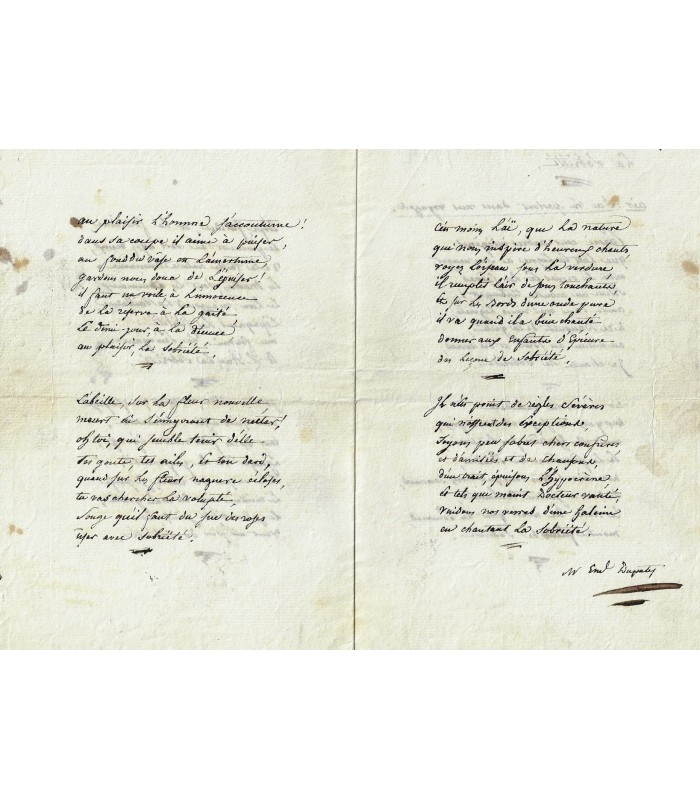 au plaisir l'honneur s'accoutume !
dans sa coupe il aime à puiser,
au fond du vase est l'amertume
gardons nous donc de l'épuiser !
il faut un voile à l'innocence
de la réserve à la gaité
le demi jour, à la décence
au plaisir, la sobriété,
L'abeille, sur la fleur nouvelle
meurt de s'énivrant de nectar !
oh toi, qui semble tenir d'elle
tes gouts, tes ailes, et ton dard,
quand sur les fleurs naguere écloses,
tu vas chercher la volupté,
songe qu'il faut du suc des roses
user avec sobriété.
que la nature
qui nous inspire d'heureux chants
voyez l'oiseau sous la verdure
il remplit l'air de sons touchants
et sur les bords d'une onde pure
il va quand il a bien chanté
donner aux enfants d'Epicure
des leçons de sobriété.
Il n'est point de règles sévères
qui n'offrent des exceptions
soyons peu sobres chers confrères
et d'amitiés et de chansons,
d'un trait, épuisons l'hypocrène
et tels que maint Docteur vanté,
vuidons nos verres d'une haleine
en chantant la sobriété.
Mr Eml Dupaty